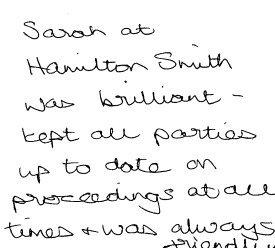 Sarah at
Hamilton Smith
was brilliant -
kept all parties
up to date on
proceedings at all
times + was always
friendly